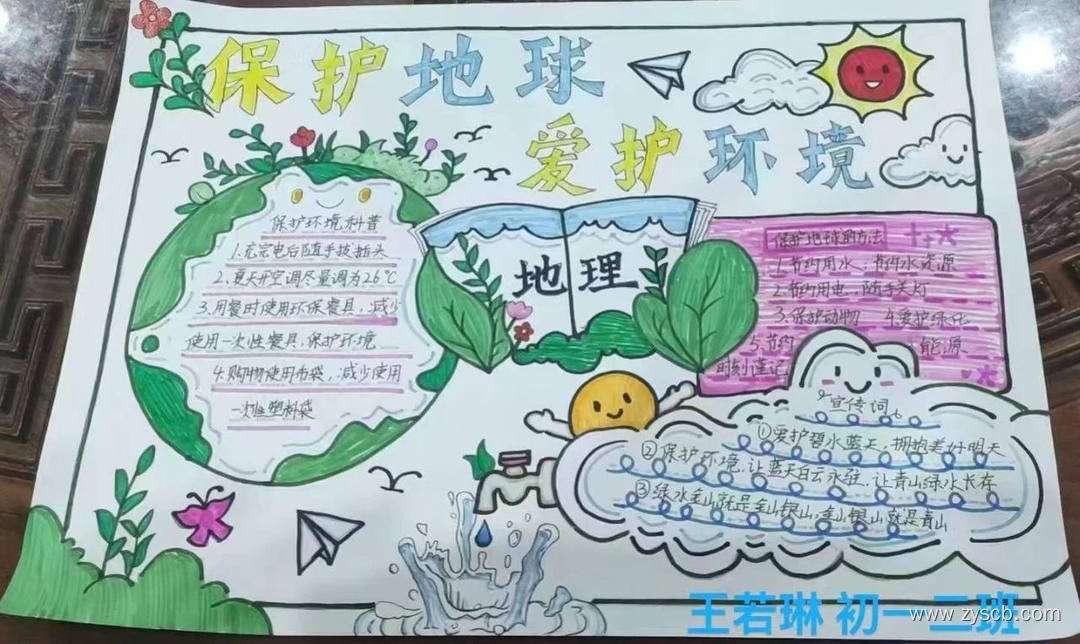 保护地球
爱护环境
保护环境科普
1.充完电后随手拔插头
2.夏天开空调尽量调为26℃
3.用餐时使用环保餐具,减少
使用一次性餐具,保护环境
4.购物使用布袋,减少使用
一次性塑料袋
地理
保护地球的方法
1.节约用水,节约水资源
2.节约用电,随手关灯
3.保护动物 4.爱护绿化
5.节约 能源
时刻谨记
宣传词
①爱护碧水蓝天,拥抱美好明天
②保护环境,让蓝天白云永驻,让青山绿水长存
③绿水金山就是金山银山,金山银山就是青山
王若琳 初一二班
www.zyscb.com